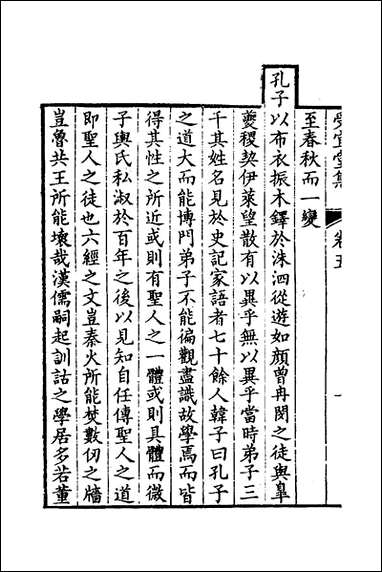 受宜堂集 卷五 一
至春秋而一變
孔子以布衣振木鐸於洙泗從遊如顏曾冉閔之徒與臯
夔稷契伊萊望散有以異乎無以異乎當時弟子三
千其姓名見於史記家語者七十餘人韓子曰孔子
之道大而能博門弟子不能徧觀盡識故學焉而皆
得其性之所近或則有聖人之一體或則具體而微
子輿氏私淑於百年之後以見知自任傳聖人之道
即聖人之徒也六經之文豈秦火所能焚數仞之牆
豈魯共王所能壞哉漢儒嗣起訓詁之學居多若董